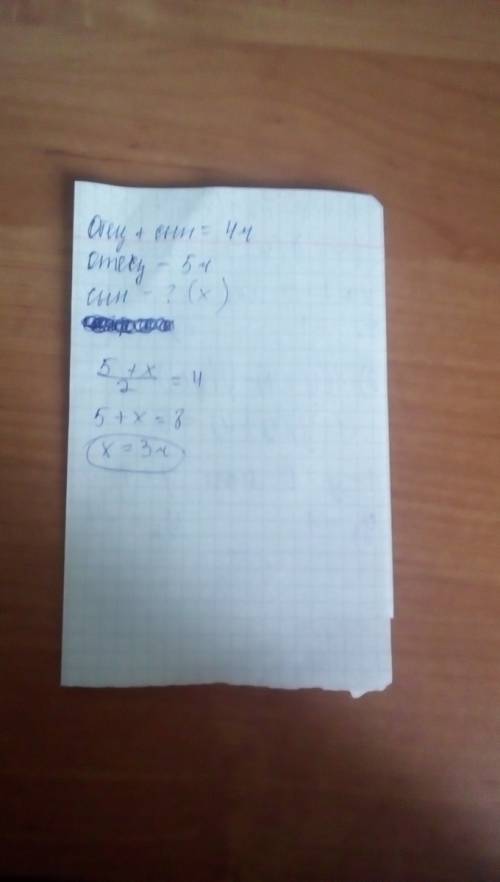 Отец + сын = 4ч
отец - 5ч
сын - ? (x)
5 + x / 2 = 4
5 + x = 8
x = 3ч